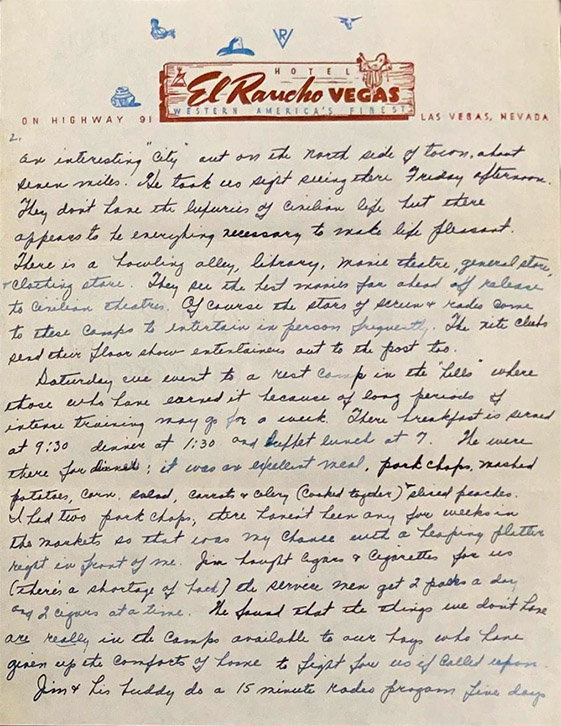 VR
HOTEL
El Rancho VEGAS
WESTERN AMERICA'S FINEST
ON HIGHWAY 91 LAS VEGAS, NEVADA
2.
an interesting "City" out on the north side of town, about
seven miles. He took us sight seeing there Friday afternoon.
They don't have the luxuries of civilian life but there
appears to be everything necessary to make life pleasant.
There is a bowling alley, library, movie theatre, general store,
+ clothing store. They see the best movies far ahead of release
to civilian theatres. Of course the stars of screen & radio come
to these camps to entertain in person frequently. The nite clubs
send their floor show entertainers out to the post too.
Saturday we went to a rest camp in the "hills" where
those who have earned it because of long periods of
intense training may go for a week. There breakfast is served
at 9:30 dinner at 1:30 and buffet lunch at 7. We were
there for dinner; it was an excellent meal, pork chops, mashed
potatoes, corn, salad, carrots & celery (cooked together) & sliced peaches.
I had two pork chops, there haven't been any for weeks in
the markets so that was my chance with a heaping platter
right in front of me. Jim bought cigars & cigarettes for us
(there's a shortage of both) the service men get 2 packs a day
and 2 cigars at a time. We found that the things we don't have
are really in the camps available to our boys who have
given up the comforts of home to fight for us if called upon.
Jim & his buddy do a 15 minute radio program five days